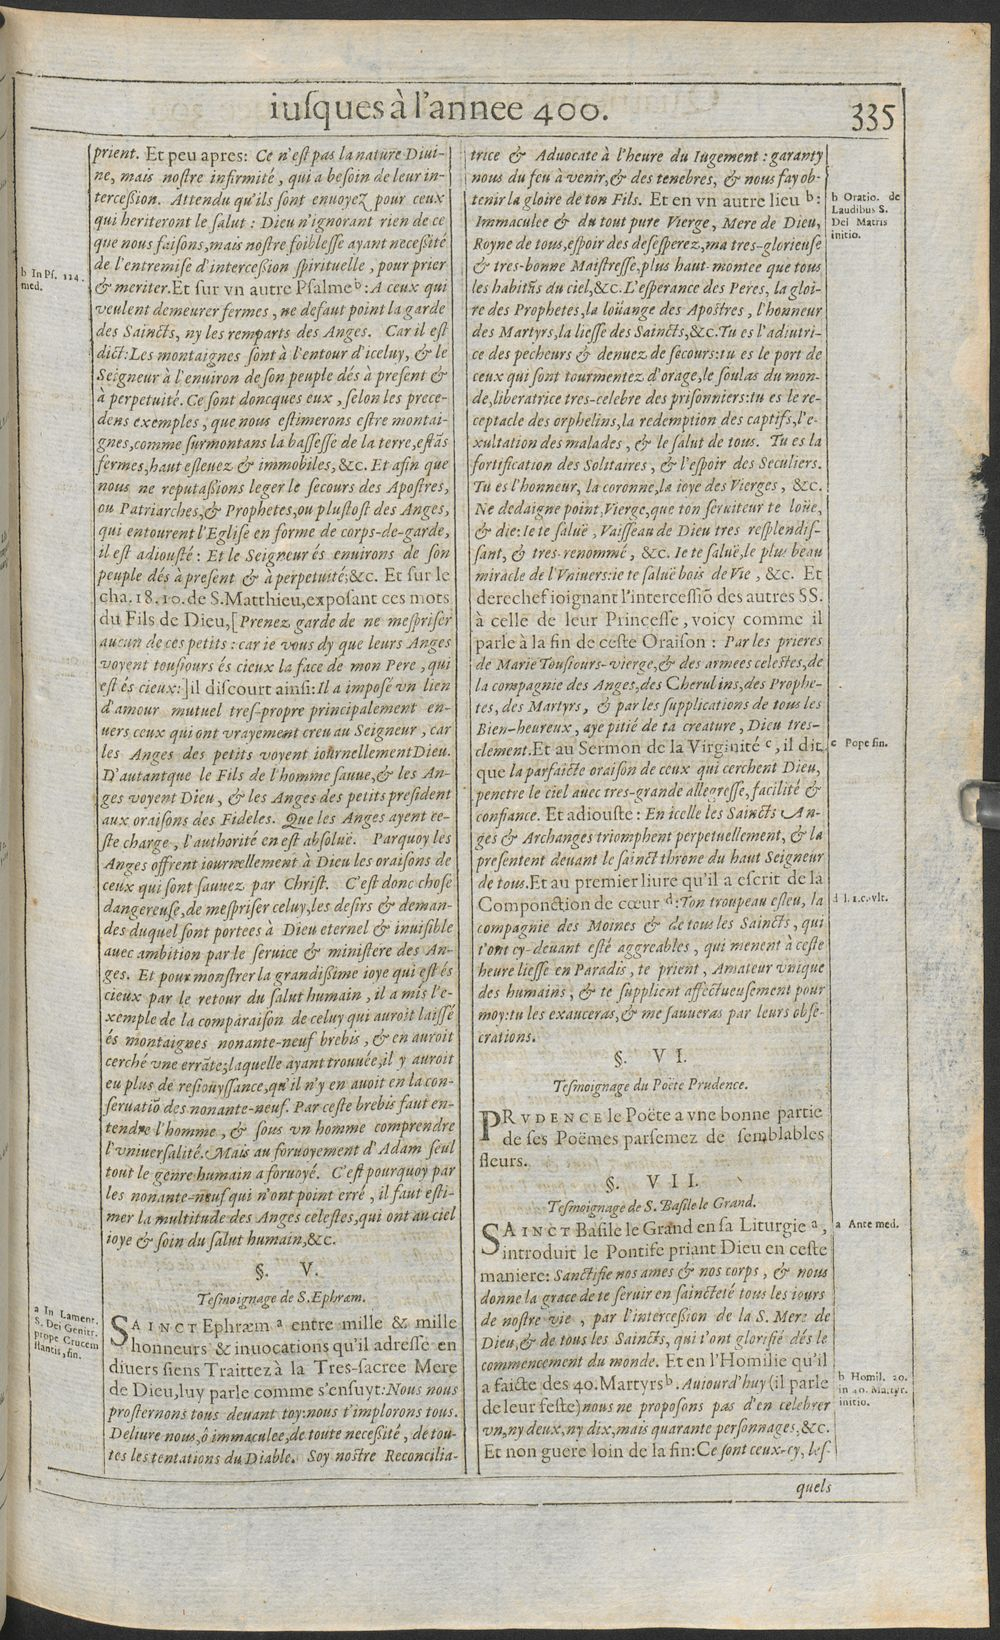 iuſques à l'annee 400.
335
prient. Et peu apres: Ce n'eſt pas la nature Diui-
ne, mais noſtre infirmité, qui a beſoin de leur in-
terceßion. Attendu qu'ils ſont enuoyez pour ceux
qui heriteront le ſalut: Dieu n'ignorant rien de ce
que nous faiſons, mais noſtre foibleſſe ayant neceßité
de l'entremiſe d'interceßion ſpirituelle, pour prier
& meriter. Et ſur vn autre Pſalme b: A ceux qui
veulent demeurer fermes, ne defaut point la garde
des Saincts, ny les remparts des Anges. Car il eſt
dict: Les montaignes ſont à l'entour d'iceluy, & le
Seigneur à l'enuiron de ſon peuple dés à preſent &
à perpetuité. Ce ſont doncques eux, ſelon les prece-
dens exemples, que nous eſtimerons eſtre montai-
gnes, comme ſurmontans la baſſeſſe de la terre, eſtãs
fermes, haut eſleuez & immobiles, &c. Et afin que
nous ne reputaßions leger le ſecours des Apoſtres,
ou Patriarches, & Prophetes, ou pluſtoſt des Anges,
qui entourent l'Egliſe en forme de corps-de-garde,
il eſt adiouſté: Et le Seigneur és enuirons de ſon
peuple dés à preſent & à perpetuité; &c. Et ſur le
cha. 18. 10. de S. Matthieu, expoſant ces mots
du Fils de Dieu, [Prenez garde de ne meſpriſer
aucun de ces petits: car ie vous dy que leurs Anges
voyent touſiours és cieux la face de mon Pere, qui
eſt és cieux:] il diſcourt ainſi: Il a impoſé vn lien
d'amour mutuel treſ-propre principalement en-
uers ceux qui ont vrayement creu au Seigneur, car
les Anges des petits voyent iournellement Dieu.
D'autant que le Fils de l'homme ſauue, & les An-
ges voyent Dieu, & les Anges des petits preſident
aux oraiſons des Fideles. Que les Anges ayent ce-
ſte charge, l'authorité en eſt abſoluë. Parquoy les
Anges offrent iournellement à Dieu les oraiſons de
ceux qui ſont ſauuez par Chriſt. C'eſt donc choſe
dangereuſe, de meſpriſer celuy, les deſirs & deman-
des duquel ſont portees à Dieu eternel & inuiſible
auec ambition par le ſeruice & miniſtere des An-
ges. Et pour monſtrer la grandißime ioye qui eſt és
cieux par le retour du ſalut humain, il a mis l'e-
xemple de la comparaiſon de celuy qui auroit laiſſé
és montaignes nonante-neuf brebis, & en auroit
cerché vne errãte; laquelle ayant trouuée, il y auroit
eu plus de reſiouyſſance, qu'il n'y en auoit en la con-
ſeruatiõ des nonante-neuf. Par ceſte brebis faut en-
tendre l'homme, & ſous vn homme comprendre
l'vniuerſalité. Mais au foruoyement d'Adam ſeul
tout le genre humain a foruoyé. C'eſt pourquoy par
les nonante-neuf qui n'ont point erré, il faut eſti-
mer la multitude des Anges celeſtes, qui ont au ciel
ioye & ſoin du ſalut humain, &c.
§. V.
Teſmoignage de S. Ephræm.
SAINCT Ephræm a entre mille & mille
honneurs & inuocations qu'il adreſſe en
diuers ſiens Traittez à la Tres-ſacree Mere
de Dieu, luy parle comme s'enſuyt: Nous nous
proſternons tous deuant toy: nous t'implorons tous.
Deliure nous, ô immaculee, de toute neceßité, de tou-
tes les tentations du Diable. Soy noſtre Reconcilia-
b In Pſ. 124.
med.
a In Lament.
S. Dei Genitr.
prope Crucem
ſtantis, fin.
trice & Aduocate à l'heure du Iugement: garanty
nous du feu à venir, & des tenebres, & nous fay ob-
tenir la gloire de ton Fils. Et en vn autre lieu b:
Immaculee & du tout pure Vierge, Mere de Dieu,
Royne de tous, eſpoir des deſeſperez, ma tres-glorieuſe
& tres-bonne Maiſtreſſe, plus haut-montee que tous
les habitãs du ciel, &c. L'eſperance des Peres, la gloi-
re des Prophetes, la loüange des Apoſtres, l'honneur
des Martyrs, la lieſſe des Saincts, &c. Tu es l'adiutri-
ce des pecheurs & denuez de ſecours: tu es le port de
ceux qui ſont tourmentez d'orage, le ſoulas du mon-
de, liberatrice tres-celebre des priſonniers: tu es le re-
ceptacle des orphelins, la redemption des captifs, l'e-
xultation des malades, & le ſalut de tous. Tu es la
fortification des Solitaires, & l'eſpoir des Seculiers.
Tu es l'honneur, la coronne, la ioye des Vierges, &c.
Ne dedaigne point, Vierge, que ton ſeruiteur te loüe,
& die: Ie te ſaluë, Vaiſſeau de Dieu tres reſplendiſ-
ſant, & tres-renommé, &c. Ie te ſaluë, le plus beau
miracle de l'Vniuers: ie te ſaluë bois de Vie, &c. Et
derechef ioignant l'interceſſiõ des autres SS.
à celle de leur Princeſſe, voicy comme il
parle à la fin de ceſte Oraiſon: Par les prieres
de Marie Touſiours-vierge, & des armees celeſtes, de
la compagnie des Anges, des Cherubins, des Prophe-
tes, des Martyrs, & par les ſupplications de tous les
Bien-heureux, aye pitié de ta creature, Dieu tres-
clement. Et au Sermon de la Virginité c, il dit,
que la parfaicte oraiſon de ceux qui cerchent Dieu,
penetre le ciel auec tres-grande allegreſſe, facilité &
confiance. Et adiouſte: En icelle les Saincts An-
ges & Archanges triomphent perpetuellement, & la
preſentent deuant le ſainct throne du haut Seigneur
de tous. Et au premier liure qu'il a eſcrit de la
Componction de cœur d: Ton troupeau eſleu, la
compagnie des Moines & de tous les Saincts, qui
t'ont cy-deuant eſté aggreables, qui menent à ceſte
heure lieſſe en Paradis, te prient, Amateur vnique
des humains, & te ſupplient affectueuſement pour
moy: tu les exauceras, & me ſauueras par leurs obſe-
crations.
§. VI.
Teſmoignage du Poëte Prudence.
PRVDENCE le Poëte a vne bonne partie
de ſes Poëmes parſemez de ſemblables
fleurs.
§. VII.
Teſmoignage de S. Baſile le Grand.
SAINCT Baſile le Grand en ſa Liturgie a,
introduit le Pontife priant Dieu en ceſte
maniere: Sanctifie nos ames & nos corps, & nous
donne la grace de te ſeruir en ſaincteté tous les iours
de noſtre vie, par l'interceßion de la S. Mere de
Dieu, & de tous les Saincts, qui t'ont glorifié dés le
commencement du monde. Et en l'Homilie qu'il
a faicte des 40. Martyrs b. Auiourd'huy (il parle
de leur feſte) nous ne propoſons pas d'en celebrer
vn, ny deux, ny dix, mais quarante perſonnages, &c.
Et non guere loin de la fin: Ce ſont ceux-cy, leſ-
quels
b Oratio. de
Laudibus S.
Dei Matris
initio.
c Pope fin.
d l. 1. c. vlt.
a Ante med.
b Homil. 20.
in 40. Martyr.
initio.